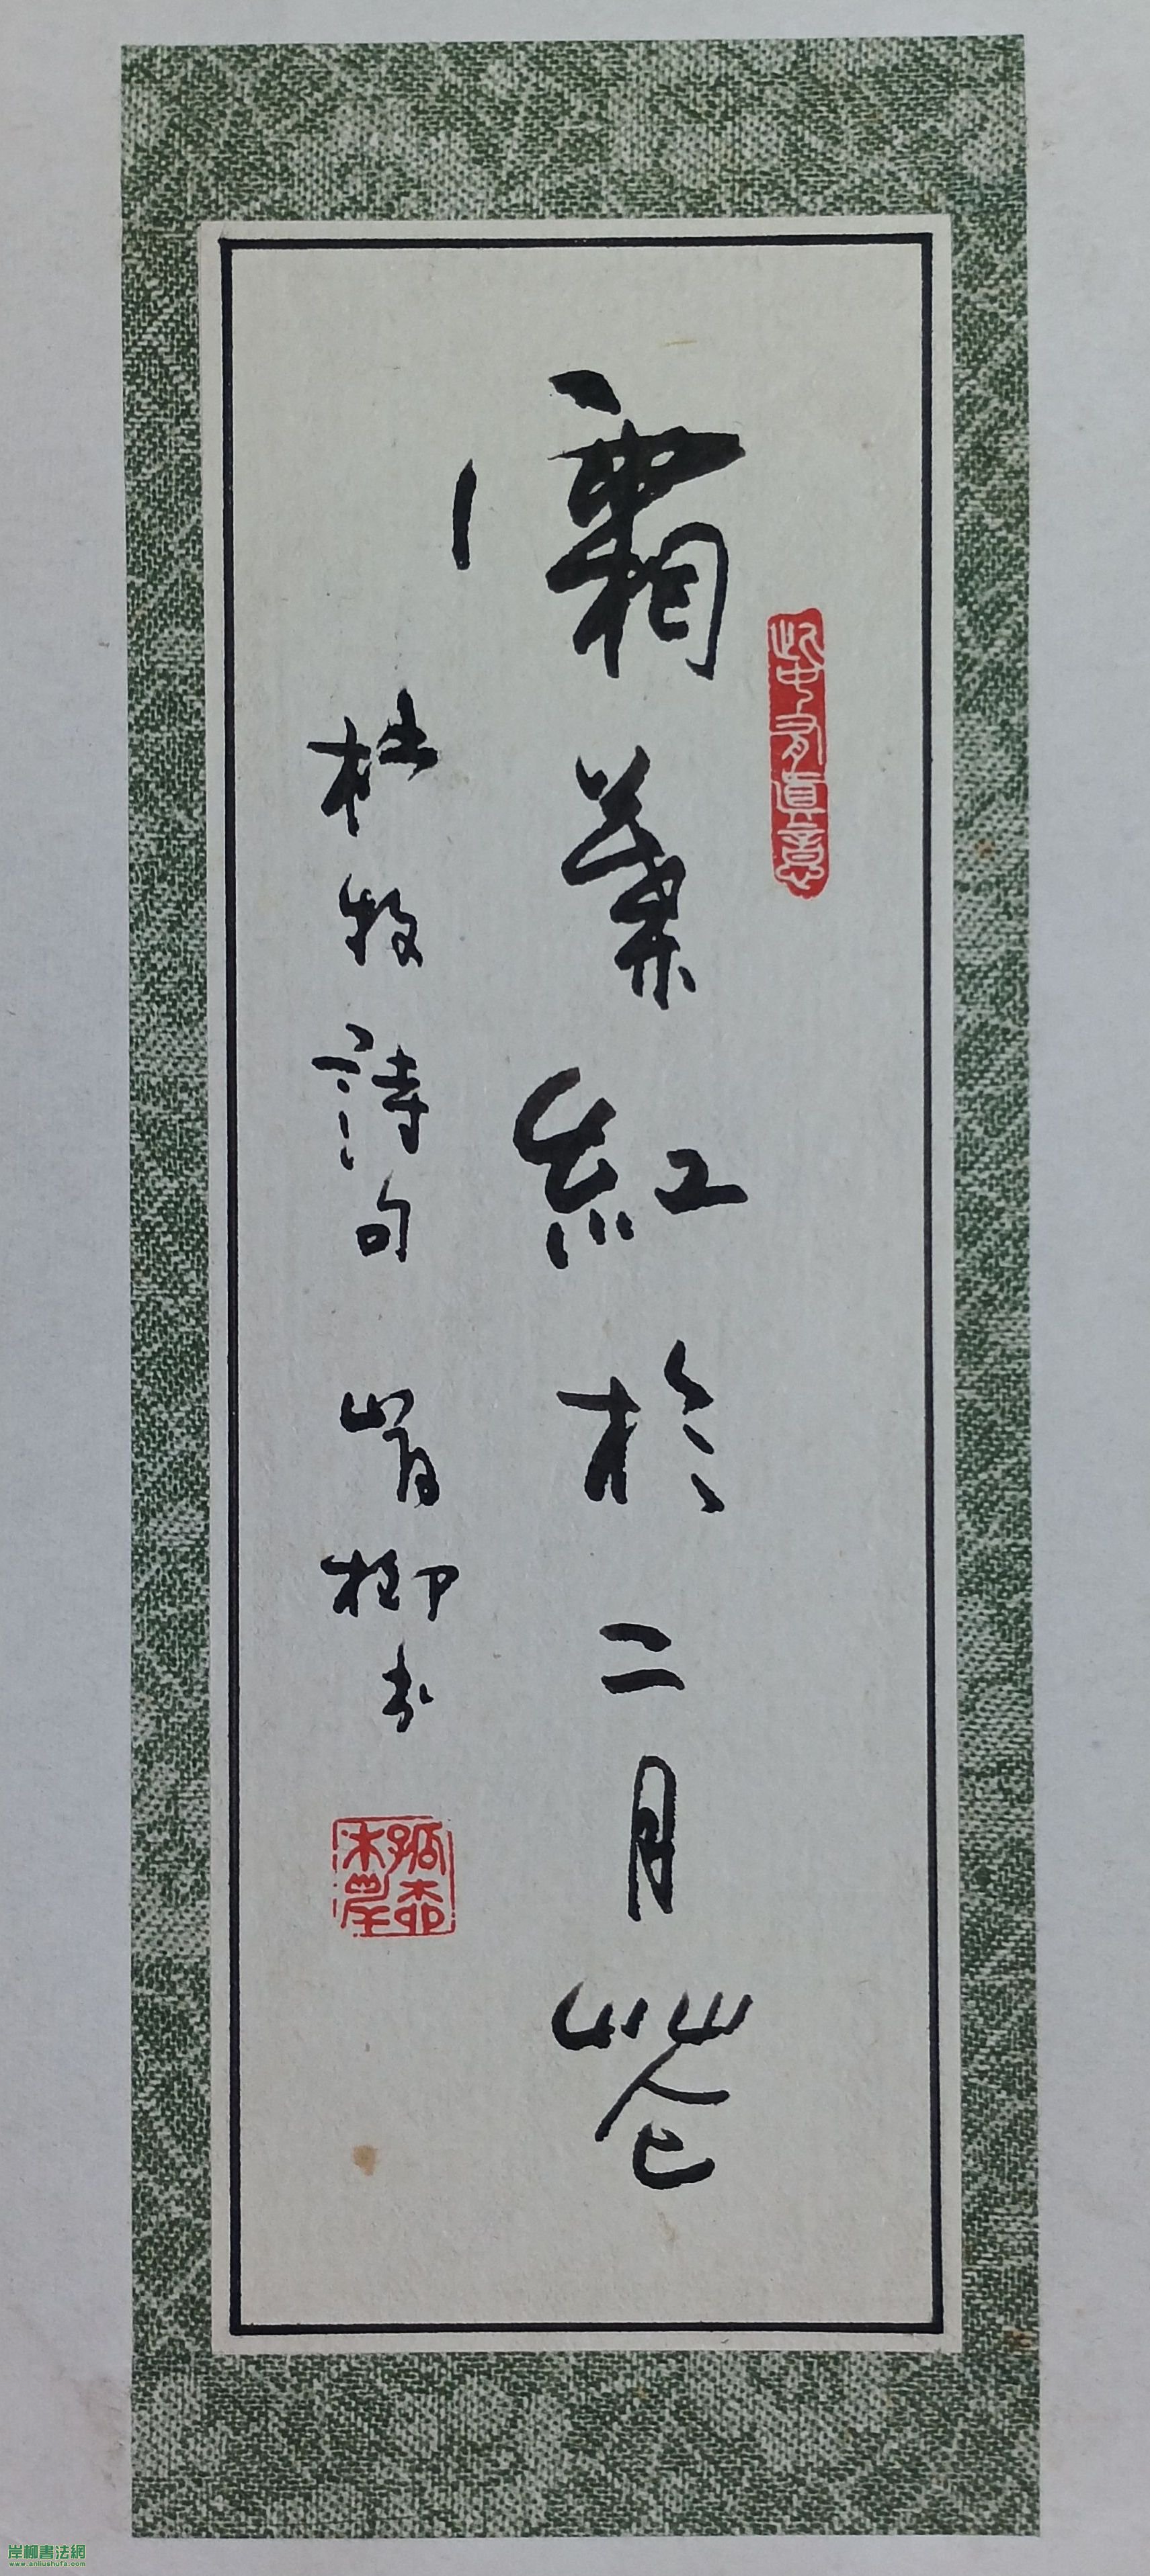 此中有真意
霜葉紅於二月花
杜牧詩句 岸柳书
岸柳書法網
www.anliushufa.com